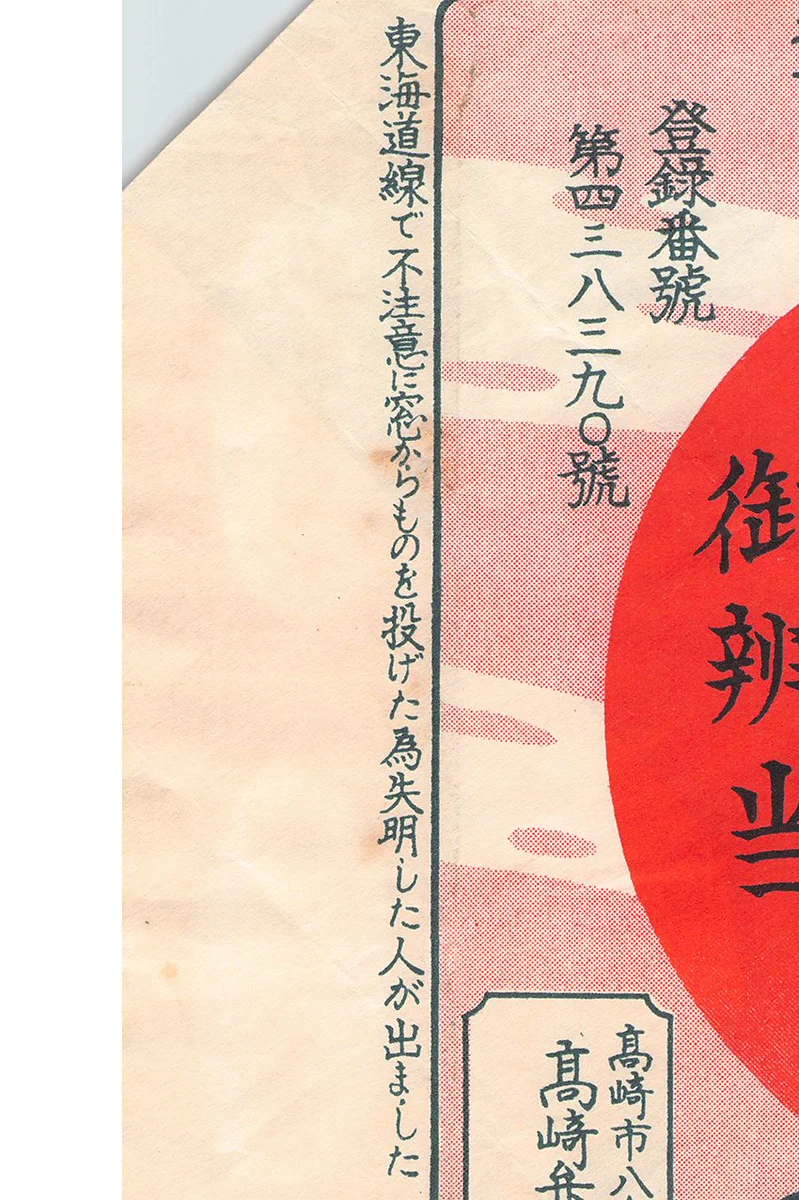 登録番號
第四三八三九〇號
御
辨
当
高崎市八
高崎弁
東海道線で不注意に窓からものを投げた為失明した人が出ました